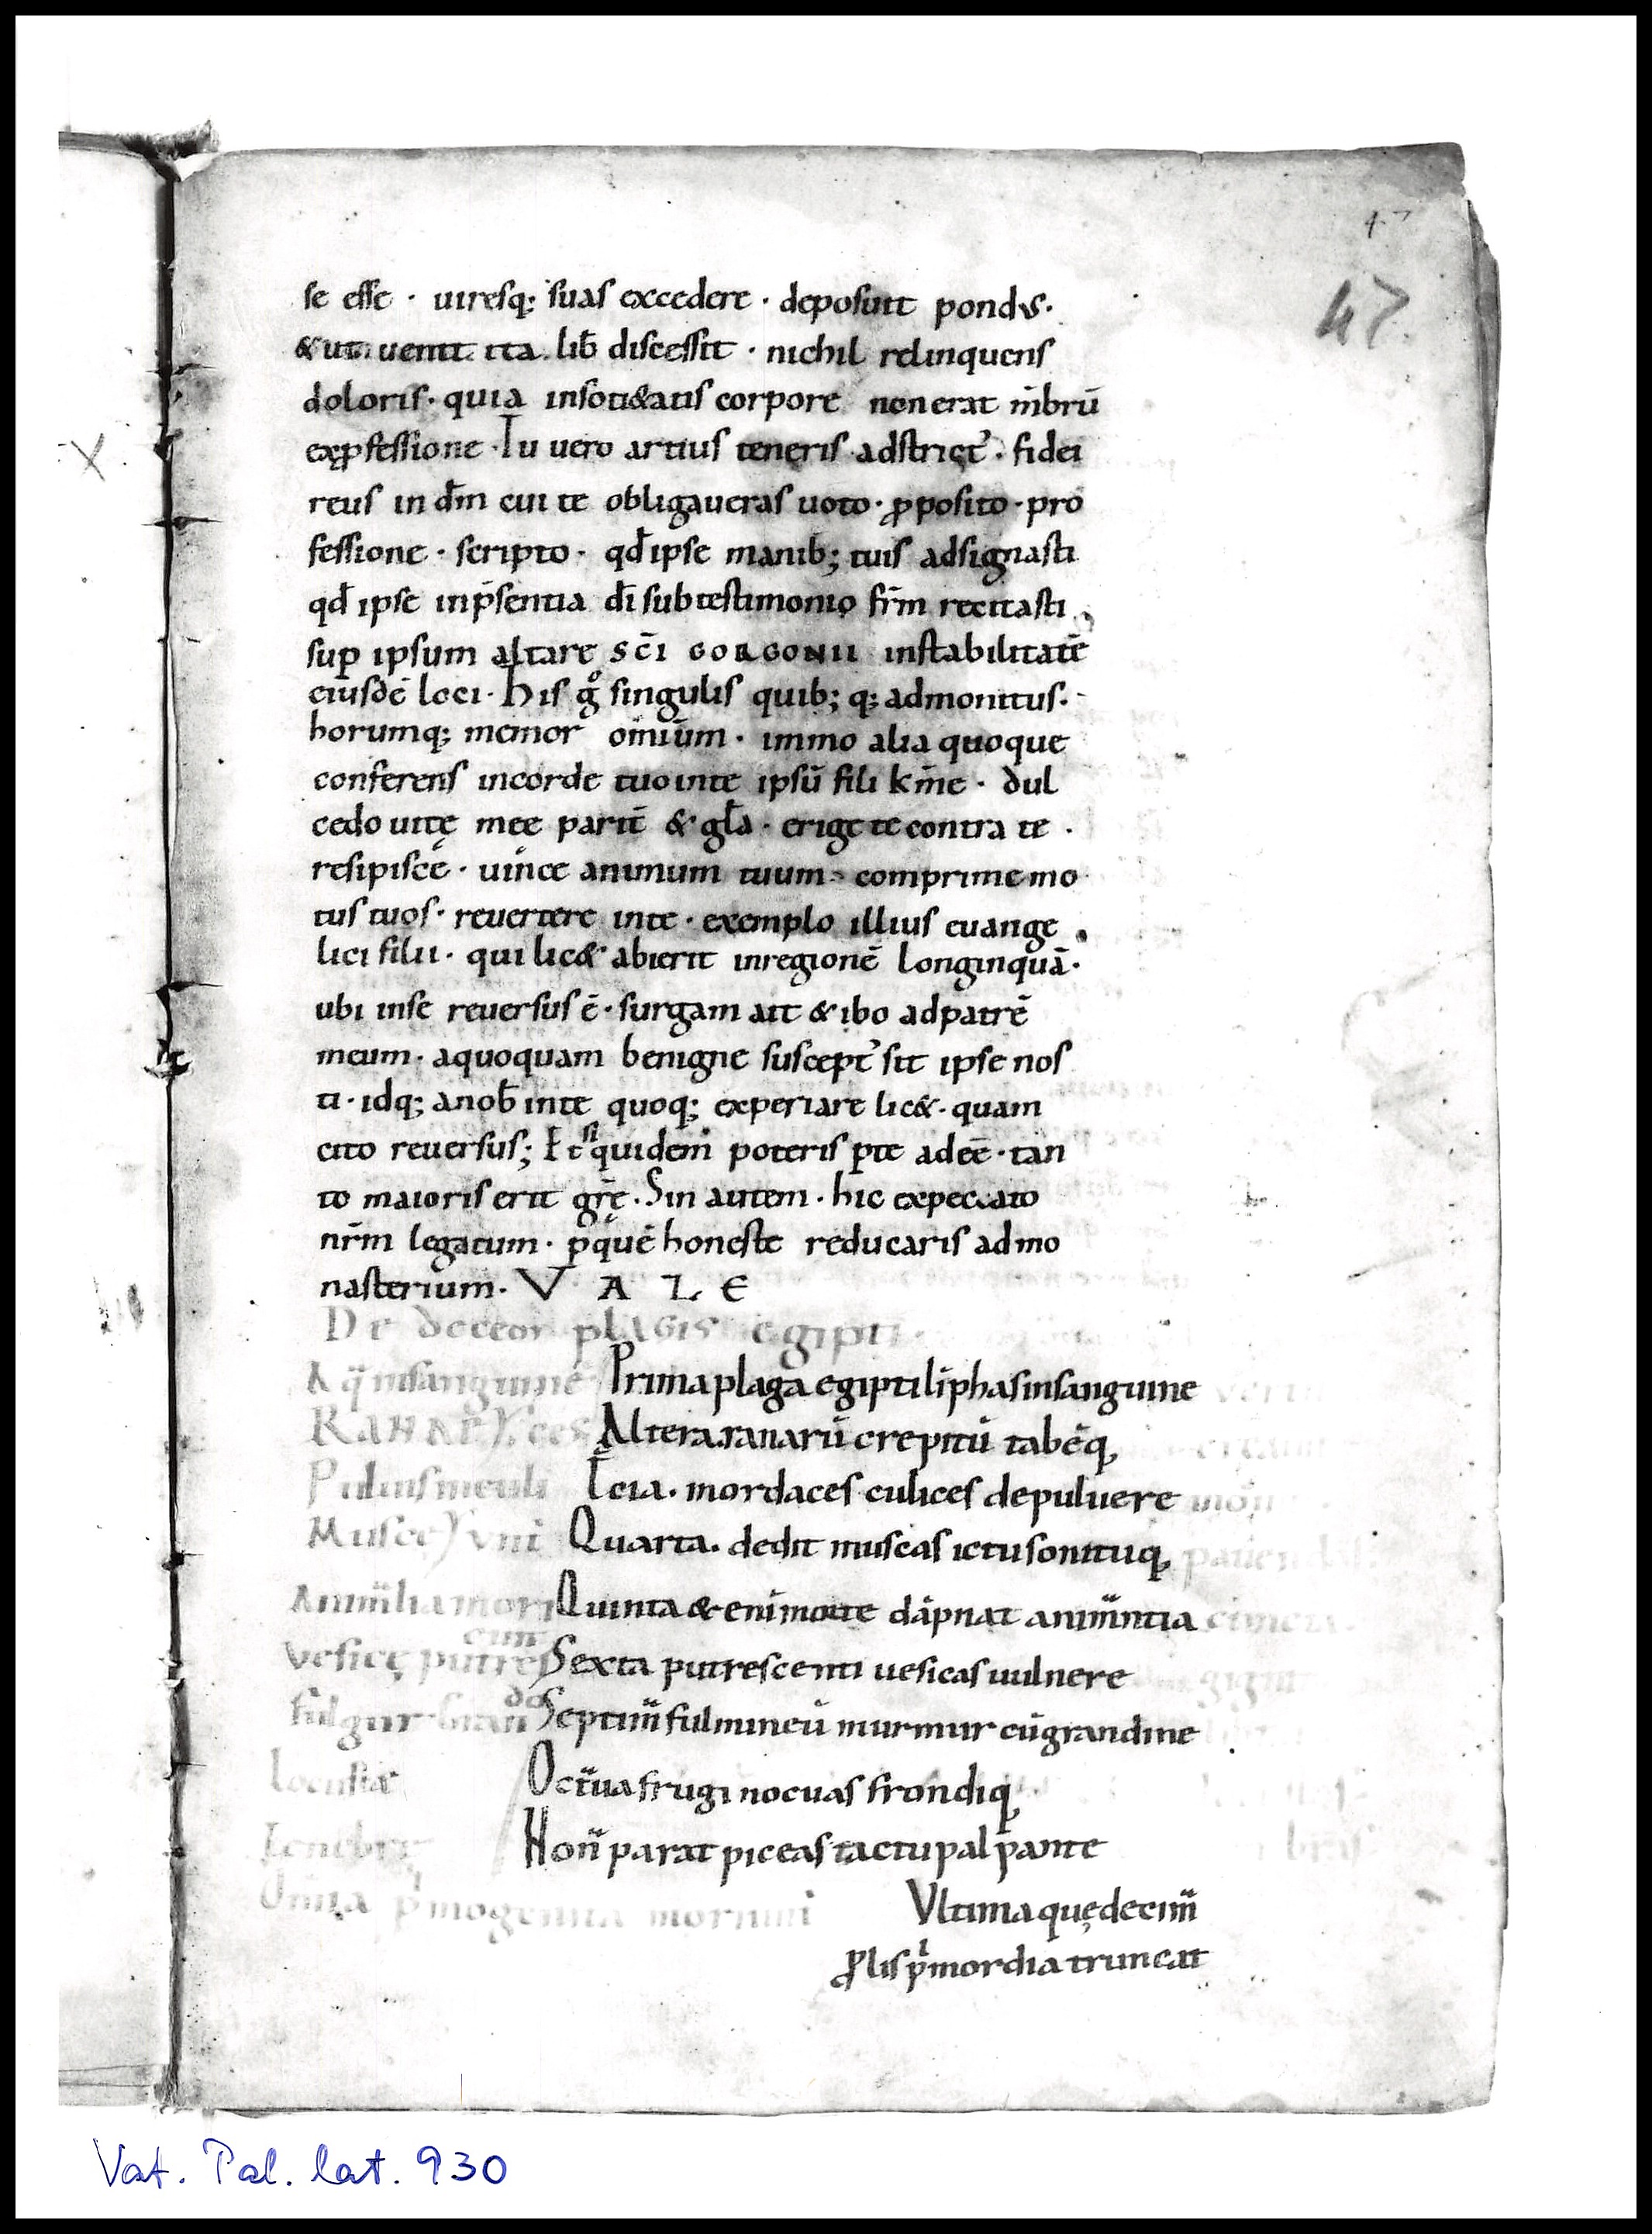 47
47
se esse · uiresq; suas excedere · deposuit pondus·
& ut uenit ita lib̄ discessit · nichil relinquens
doloris · quia insotietatis corpore non erat m̄brū
ex p̱fessione · Tu uero artius teneris adstrict᾿ · fidei
reus in dm̄ cui te obligaueras uoto · ꝓposito · pro
fessione · scripto · qđ ipse manib; tuis adsignasti
qđ ipse in p̄sentia dī sub testimonio frm̄ recitasti
sup̱ ipsum altare SC̄I GORGONII in stabilitatē
eiusdē loci · His gͦ singulis quib; q; admonitus·
horumq; memor omīum · immo alia quoque
conferens in corde tuo inte ipsū fili km̄e · dul
cedo uitę meę paritē & gła · erige te contra te ·
resipiscē · uince animum tuum · comprime mo
tus tuos · reuertere in te · exemplo illius euange
lici filii · qui lic& abierit in regionē longinquā·
ubi in se reuersus ē · surgam ait & ibo ad patrē
meum · a quo quam benigne suscept᾿ sit ipse nos
ti · idq; a nob̄ in te quoq; experiare lic& · quam
cito reuersus; Et si quidem poteris p̱ te adeē · tan
to maioris erit grę̄ · Sin autem · hic expectato
nrm̄ legatum · p̱ quē honeste reducaris ad mo
nasterium · V A L E
De decem plagis egipti
Aq̈ in sanguinē Prima plaga egipti liphas in sanguine
Ranae Altera ranarū crepitū tabēq,
Puluis in culi Tcia · mordaces culices de puluere
Muscę Quarta · dedit muscas ictu sonituq,
Animͣlia mori Quinta & enī morte dāpnat animͣntia
Vesicę putres cun Sexta putrescenti uesicas uulnere
Fulgur gran do Septimͣ fulmineū murmur cū grandine
Locustæ Octͣua frugi nocuas frondiq,
Tenebrę Nonͣ parat piceas tactu palpante
Om̄ia pͥmogenita Vltima quę decimͣ
ꝓlis pͥmordia truncat
Vat. Pal. lat. 930